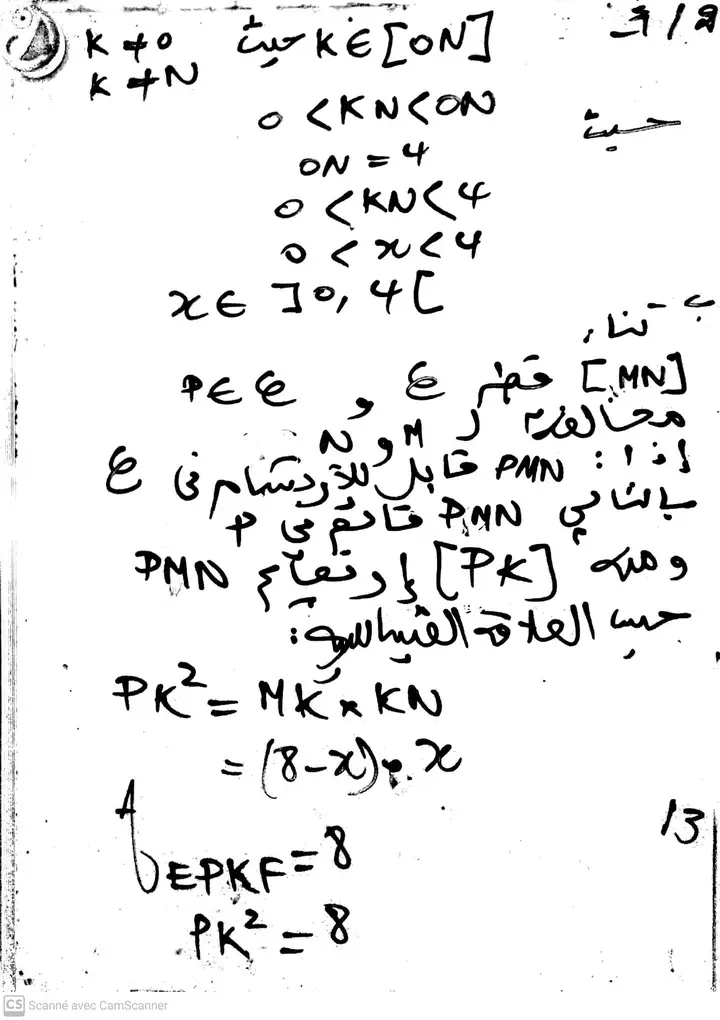 K ≠ 0 حيث K ∈ [ON]
K ≠ N
0 < KN < ON حيث
ON = 4
0 < KN < 4
0 < x < 4
x ∈ ]0, 4[
ب
[MN] قطر 𝒞 و P ∈ 𝒞
مخالفة لـ M و N
إذا: PMN قابل للارتسام في 𝒞
بالتالي PMN قائم في P
ومنه [PK] إرتفاع PMN
حسب العلاقة القياسية:
PK² = MK × KN
= (8-x) . x
13
A EPKF = 8
PK² = 8
CS Scanné avec CamScanner